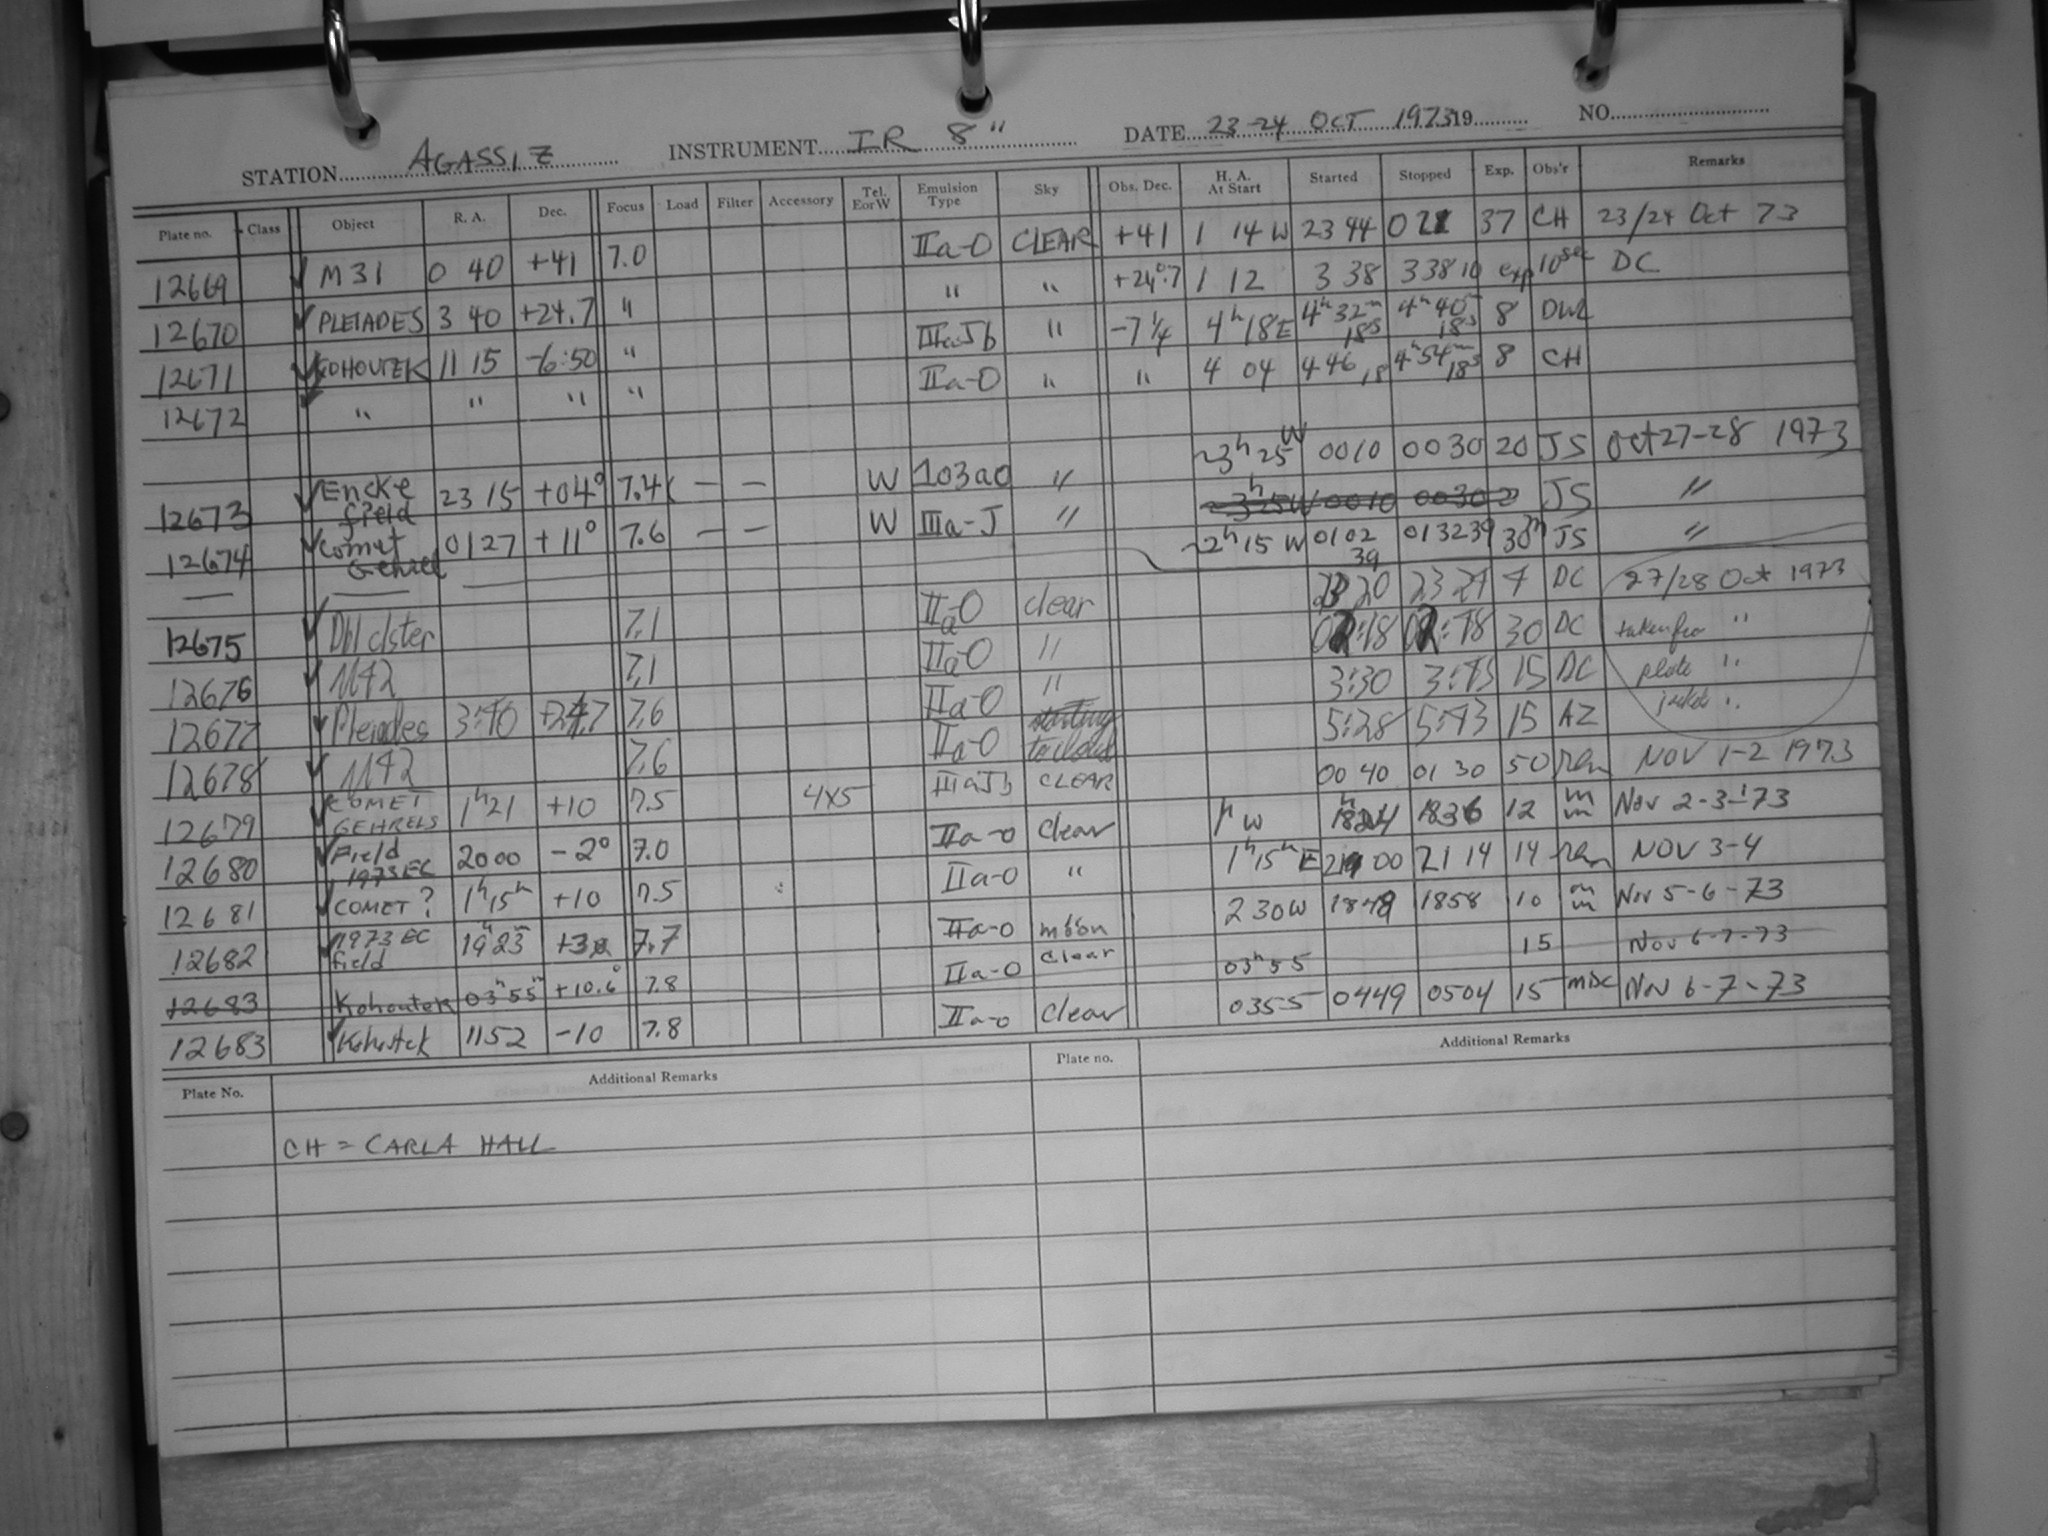 STATION AGASSIZ INSTRUMENT IR 8" DATE 23-24 OCT 1973 19 NO.
Plate no. Class Object R. A. Dec. Focus Load Filter Accessory Tel. EorW Emulsion Type Sky Obs. Dec. H. A. At Start Started Stopped Exp. Obs'r Remarks
12669 M31 0 40 +41 7.0 IIa-O CLEAR +41 1 14 W 23 44 37 CH 23/24 Oct 73
12670 PLEIADES 3 40 +24.7 " " " +24°.7 1 12 3 38 3 38 10 exp 10sec DC
12671 KOHOUTEK 11 15 -6:50 " IIIaJb " -7 1/4 4h 18 E 4h 32m 18s 4h 40m 18s 8
12672 " " " " IIa-O " " 4 04 4 46 18 4h 54m 18s 8 CH
12673 Encke field 23 15 +04° 7.4 — — W 103aO " ~3h 25 W 0010 0030 20 JS Oct 27-28 1973
~3h 25 W 0010 0030 JS "
12674 Comet Gehrel 0127 +11° 7.6 — — W IIIa-J " ~2h 15 W 0102 39 013239 30m JS "
12675 Dbl clster 7.1 IIa-O clear 23 20 DC 27/28 Oct 1973
12676 M42 7.1 IIa-O " 30 DC taken "
12677 Pleiades 3:40 +24.7 7.6 IIa-O " 3:30 3:45 15 DC plate "
12678 M42 7.6 IIa-O starting to cloud 5:28 5:43 15 AZ "
12679 COMET GEHRELS 1h21 +10 7.5 4x5 IIIaJb CLEAR 00 40 01 30 50 NOV 1-2 1973
12680 Field 1973EC 2000 -2° 7.0 IIa-O clear 1h W 1824 1836 12 Nov 2-3-'73
12681 COMET? 1h 15m +10 7.5 IIa-O " 1h 15m E 21 00 21 14 14 NOV 3-4
12682 1973 EC field 19h 23m 7.7 IIa-O moon 2 30 W 1848 1858 10 Nov 5-6-73
12683 Kohoutek 03h 55m +10.6° 7.8 IIa-O clear 03h 55 15 Nov 6-7-73
12683 Kohoutek 1152 -10 7.8 IIa-O clear 0355 0449 0504 15 Nov 6-7-73
Plate No. Additional Remarks Plate no. Additional Remarks
CH = CARLA HALL